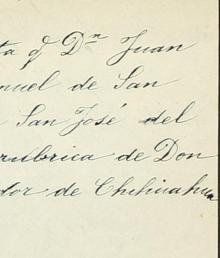 ta q Dn Juan
nuel de San
San José del
rubrica de Don
dor de Chihuahua